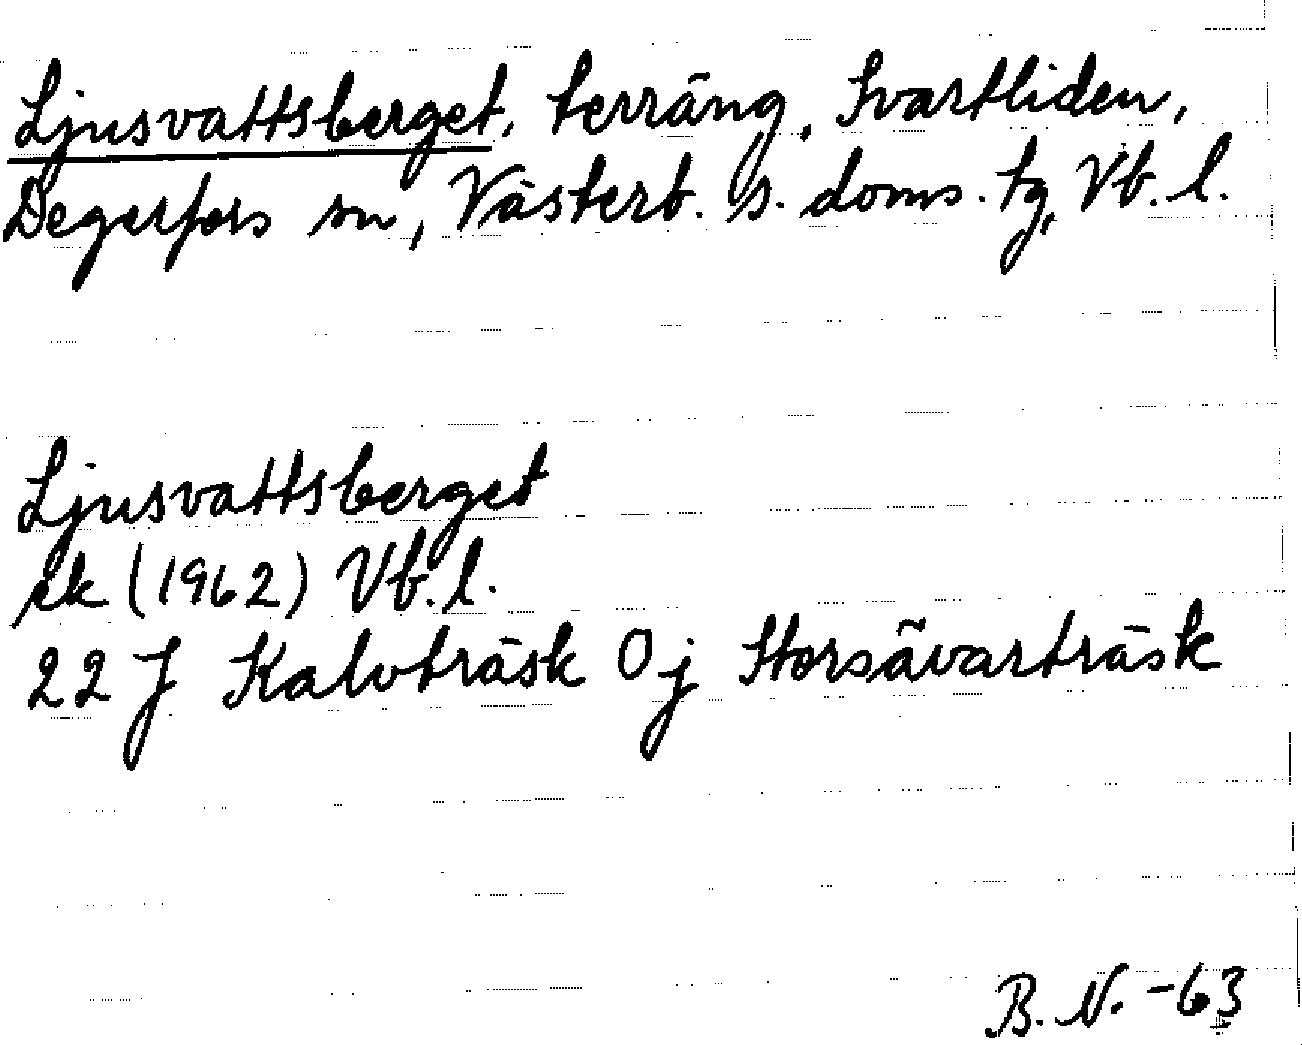 Ljusvattsberget, terräng, Svartliden,
Degerfors sn, Västerb. s. doms. tg, Vb. l.
Ljusvattsberget
ek (1962) Vb. l.
22 J Kalvträsk 0 j Storsävarträsk
B. N. -63